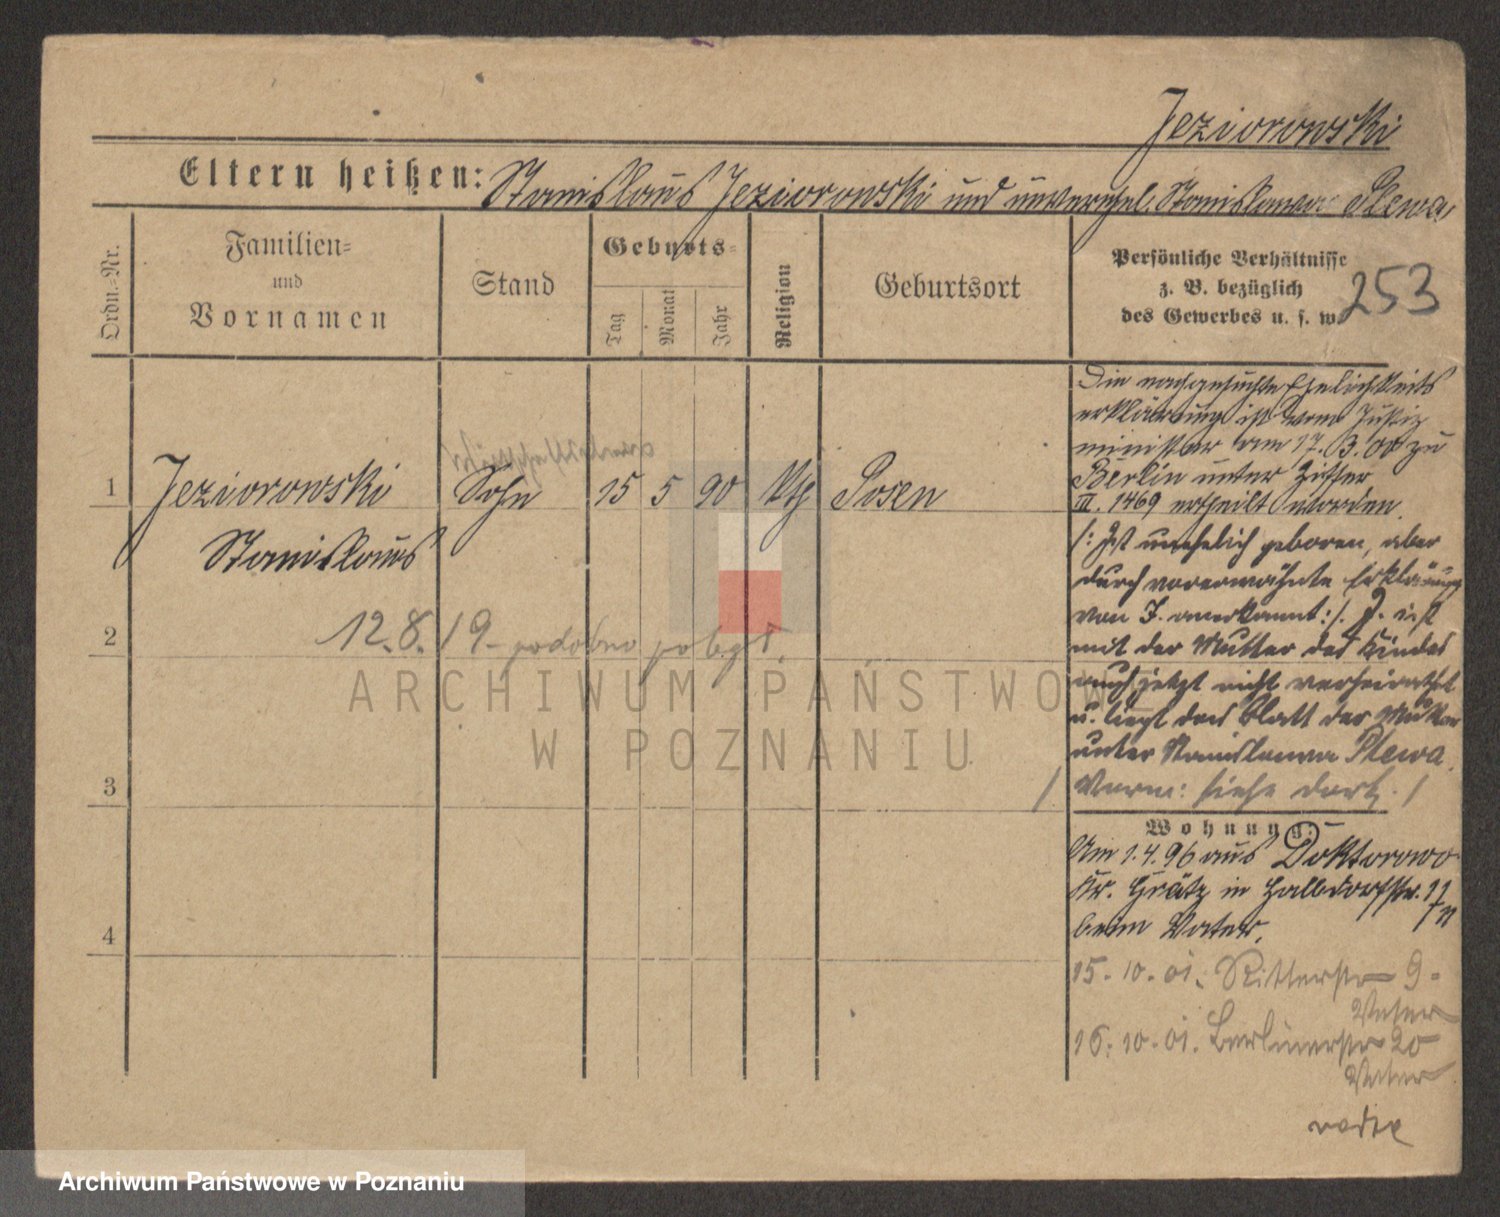 Jeziorowski
Eltern heißen: Stanislaus Jeziorowski und unverehel. Stanislawa Plewa
Ordn.-Nr.
Familien-
und
Vornamen
Stand
Geburts-
Tag
Monat
Jahr
Religion
Geburtsort
Persönliche Verhältnisse
z. B. bezüglich
des Gewerbes u. s. w.
253
1 Jeziorowski Sohn 15 5 90 kth Posen
Stanislaus
2 12.8.19 - podobno poległ.
3
4
Die nachgesuchte Ehelichkeits
erklärung ist vom Justiz
minister am 17.3.00 zu
Berlin unter Ziffer
III. 1469 ertheilt worden.
/: Ist unehelich geboren, aber
durch vorerwähnte Erklärung
von J. anerkannt :/. J. ist
mit der Mutter des Kindes
auch jetzt nicht verheirathet
u. liegt das Blatt der Mutter
unter Stanislawa Plewa.
/ Verm: siehe dort. /
Wohnung:
Am 1.4.96 aus Doktorowo
Kr. Grätz in Halbdorfstr. 11
beim Vater.
15.10.01. Ritterstr 9-
Vater
16.10.01. Berlinerstr 20
Vater
ARCHIWUM PAŃSTWOWE
W POZNANIU
Archiwum Państwowe w Poznaniu